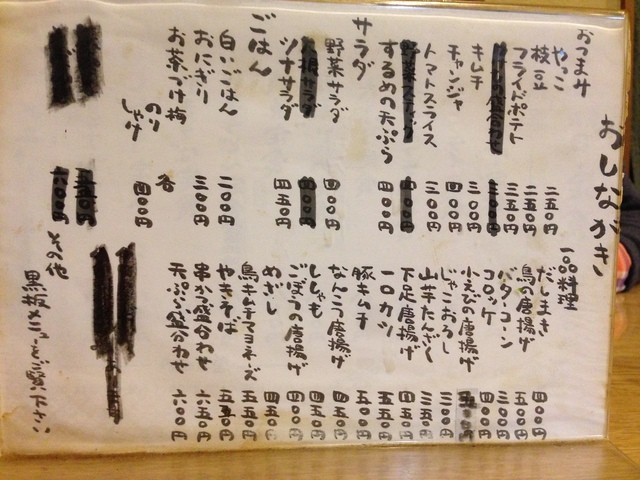 おしながき
おつまみ
やっこ 二五〇円
枝豆 二五〇円
フライドポテト 三五〇円
キムチ 三〇〇円
チャンジャ 四〇〇円
トマトスライス 三〇〇円
するめの天ぷら 四〇〇円
サラダ
野菜サラダ 四〇〇円
ツナサラダ 四五〇円
ごはん
白いごはん 二〇〇円
おにぎり 三〇〇円
お茶づけ 梅
のり 各 四〇〇円
しゃけ
一品料理
だしまき 四〇〇円
鳥の唐揚げ 五〇〇円
バターコーン 三〇〇円
コロッケ 四〇〇円
小えびの唐揚げ
じゃこおろし 三〇〇円
山芋たんざく 三五〇円
下足唐揚げ 四五〇円
一口カツ 五五〇円
豚キムチ 五〇〇円
なんこつ唐揚げ 四五〇円
ししゃも 四五〇円
ごぼうの唐揚げ 四〇〇円
めざし 四五〇円
鳥キムチマヨネーズ 五五〇円
やきそば 五五〇円
串かつ盛合わせ 六五〇円
天ぷら盛合わせ 六〇〇円
その他
黒板メニューもご覧下さい